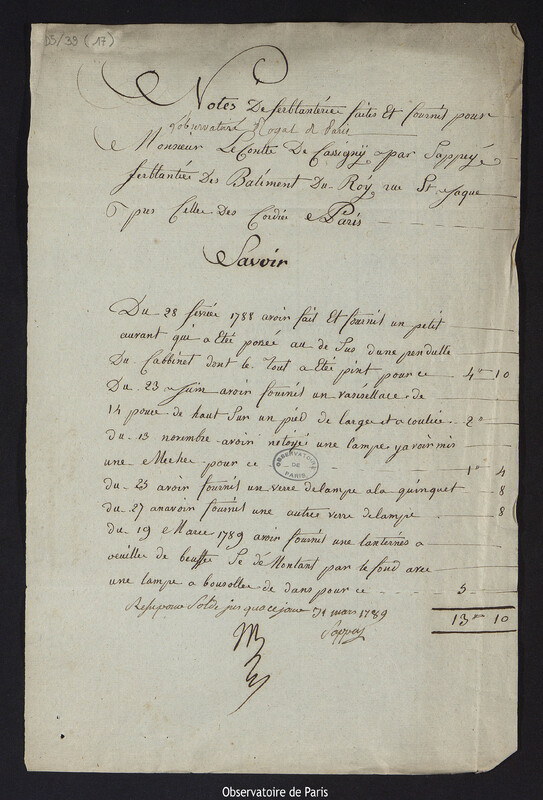 D3/39 (17)
Notes De ferblanterie faites Et fournit pour
l'observatoire Royal de Paris
Monsieur Le Comte De Cassigny par Sappey
ferblantiée Des Batiment Du Roy, rue St Jaque
pres Celle Des Cordié a Paris
Savoir
Du 28 février 1788 avoir fait Et fournit un petit
auvant qui a Eté posée au de Sus dune pendulle
Du Cabbinet dont le Tout a Eté pint pour ce 4 10
Du 23 Juin avoir fournit un de
14 pouce de haut Sur un pied de large et a coulice 2
du 13 novembre avoir netoyé une lampe y avoir mis
une Meche pour ce 1 4
OBSERVATOIRE DE PARIS
du 23 avoir fournit un verre delampe ala quinquet 8
du 27 avoir fournit une autre verre delampe 8
du 19 Marce 1789 avoir fournit une lanternée a
de beuffe Se démontant par le fond avec
une lampe a de dans pour ce 5
Resu pour Solde jus qua ce jour 31 mars 1789
13 10
Sappey
Observatoire de Paris